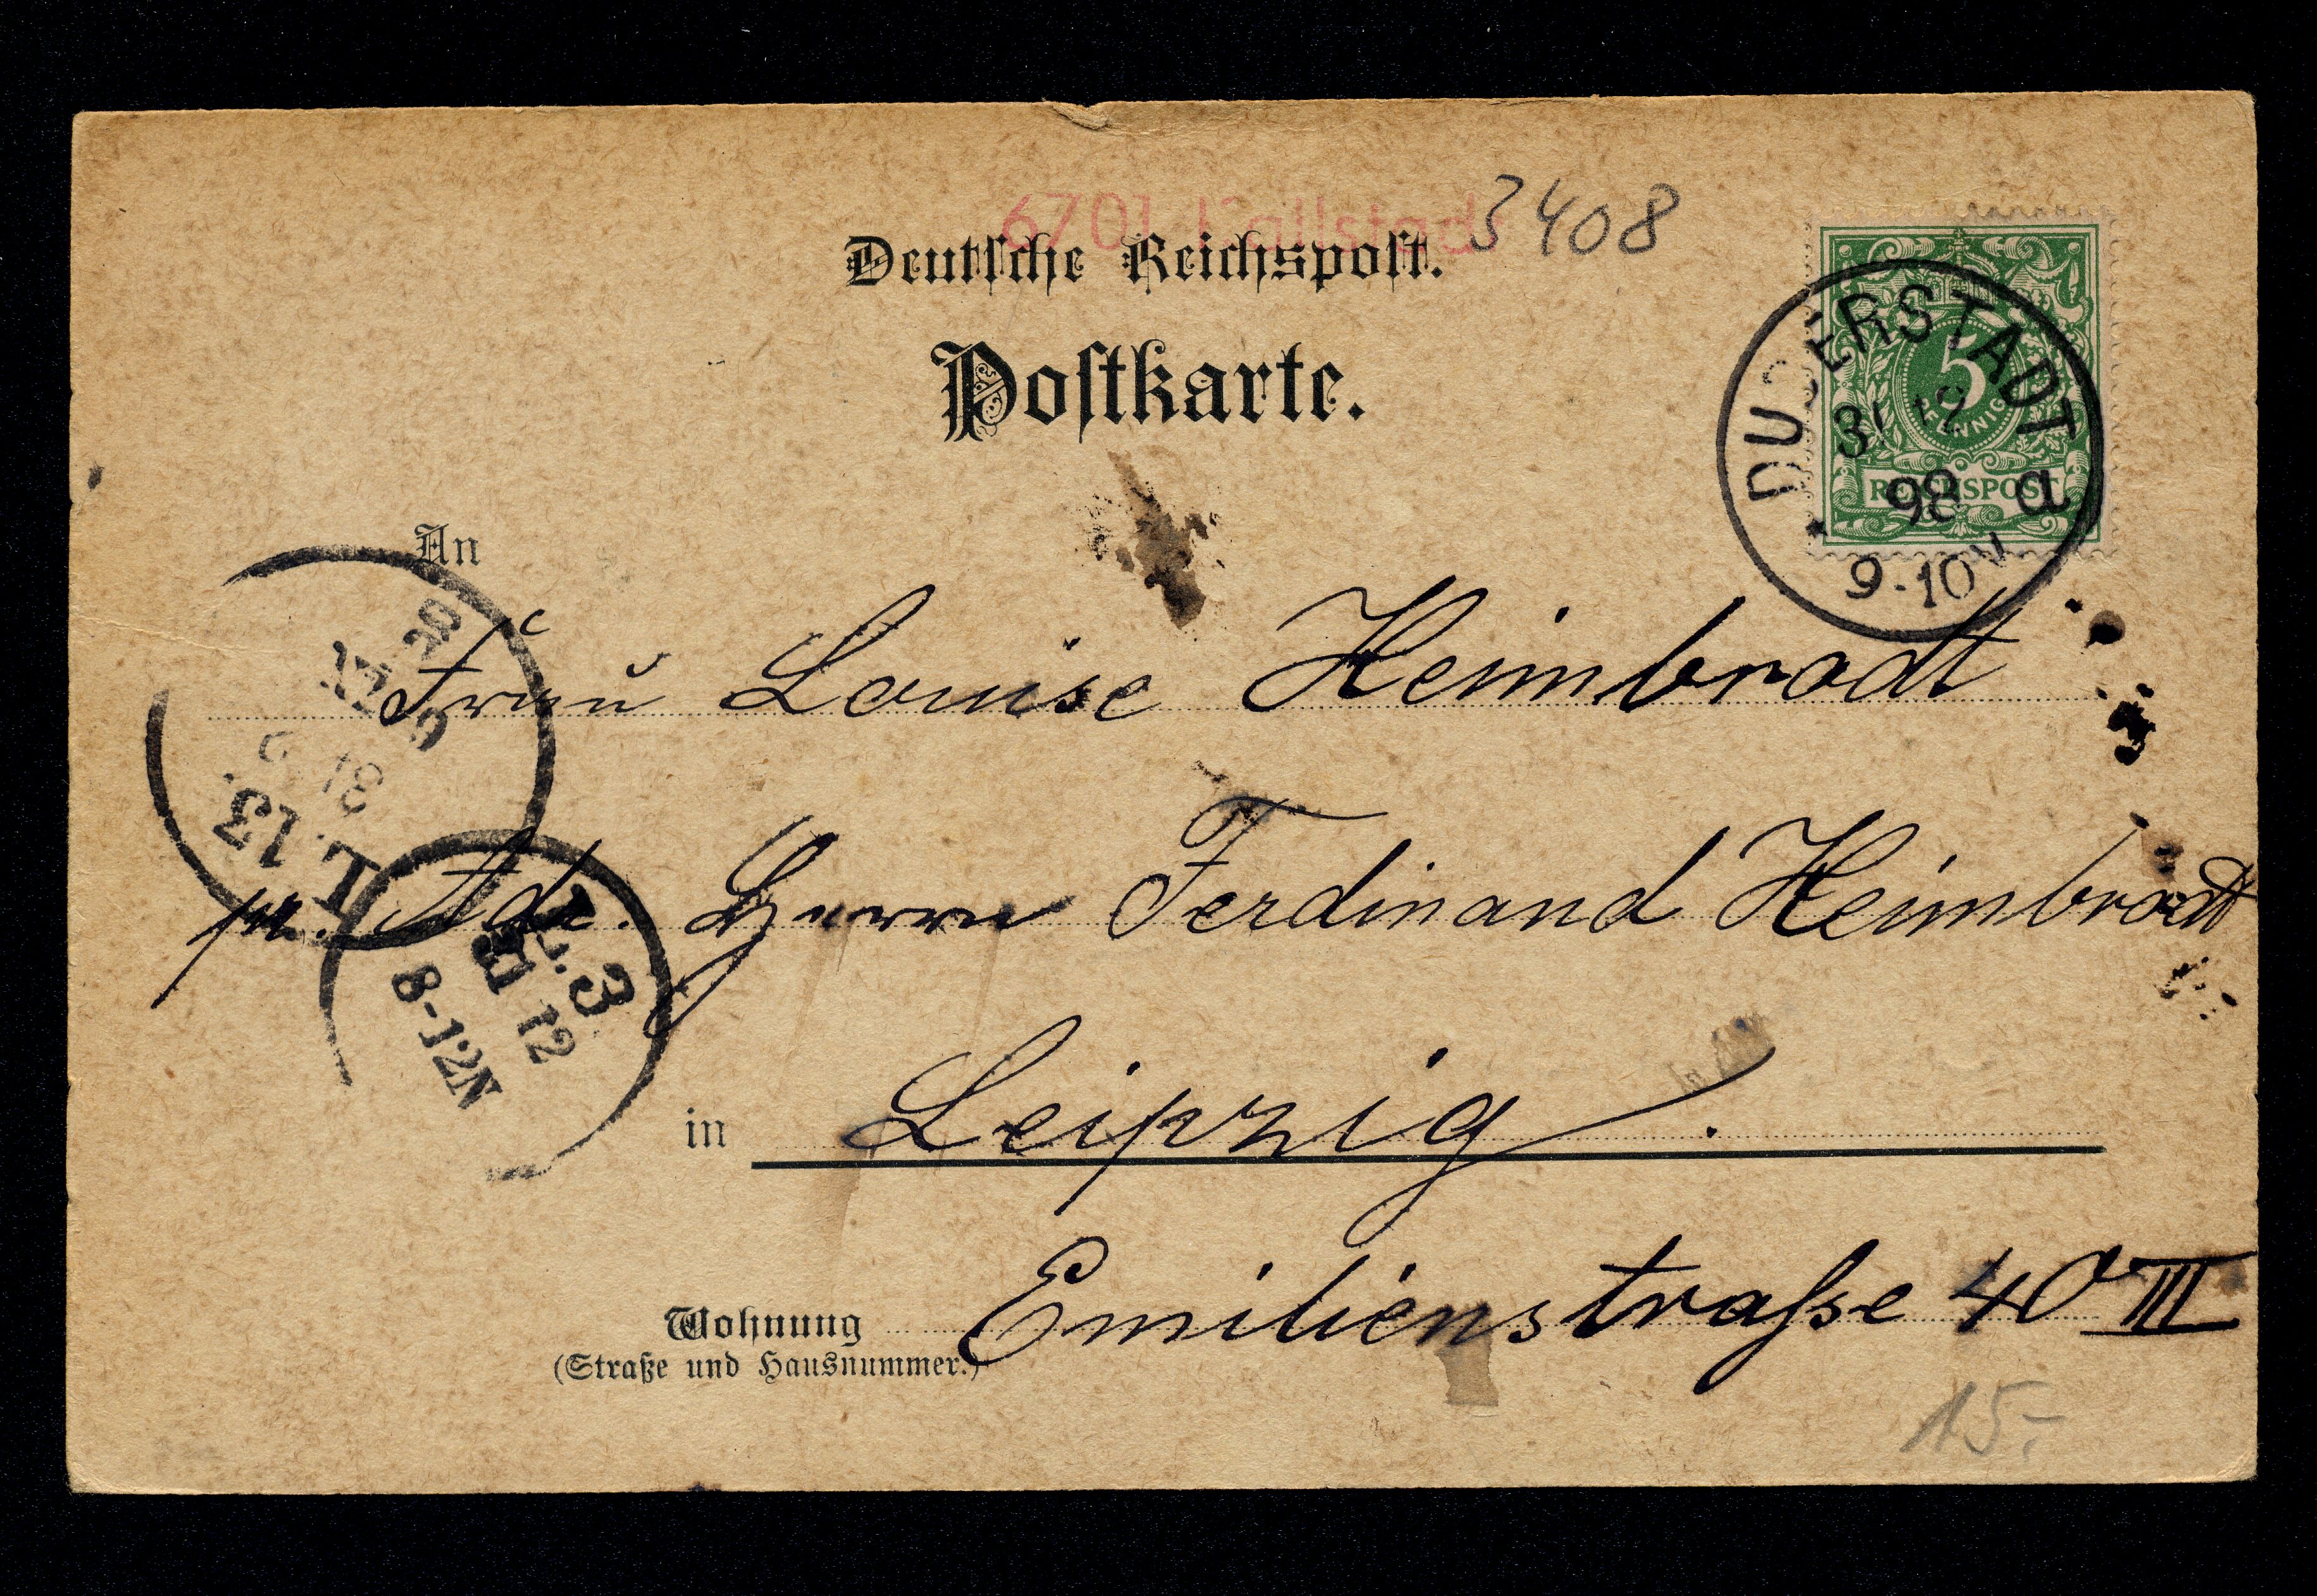 3408
Deutsche Reichspost.
Postkarte.
5
PFENNIG
REICHSPOST
DUDERSTADT
31 12
98 a
9-10V
An
Frau Louise Heimbrodt
pr. Adr. Herrn Ferdinand Heimbrodt
in Leipzig.
Wohnung Emilienstraße 40 III
(Straße und Hausnummer.)
L. 13.
L. 3
31 12
8-12N
15.-